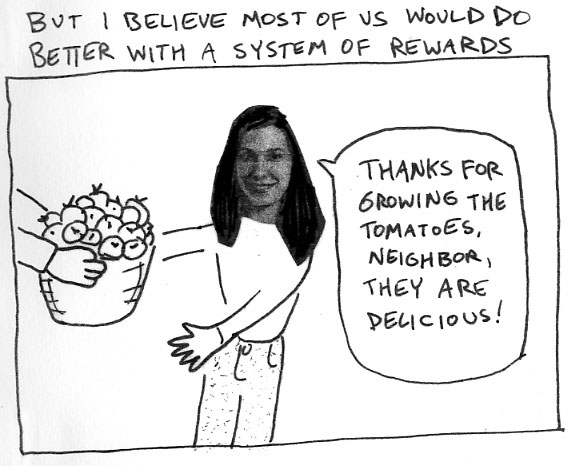 BUT I BELIEVE MOST OF US WOULD DO
BETTER WITH A SYSTEM OF REWARDS
THANKS FOR
GROWING THE
TOMATOES,
NEIGHBOR,
THEY ARE
DELICIOUS!